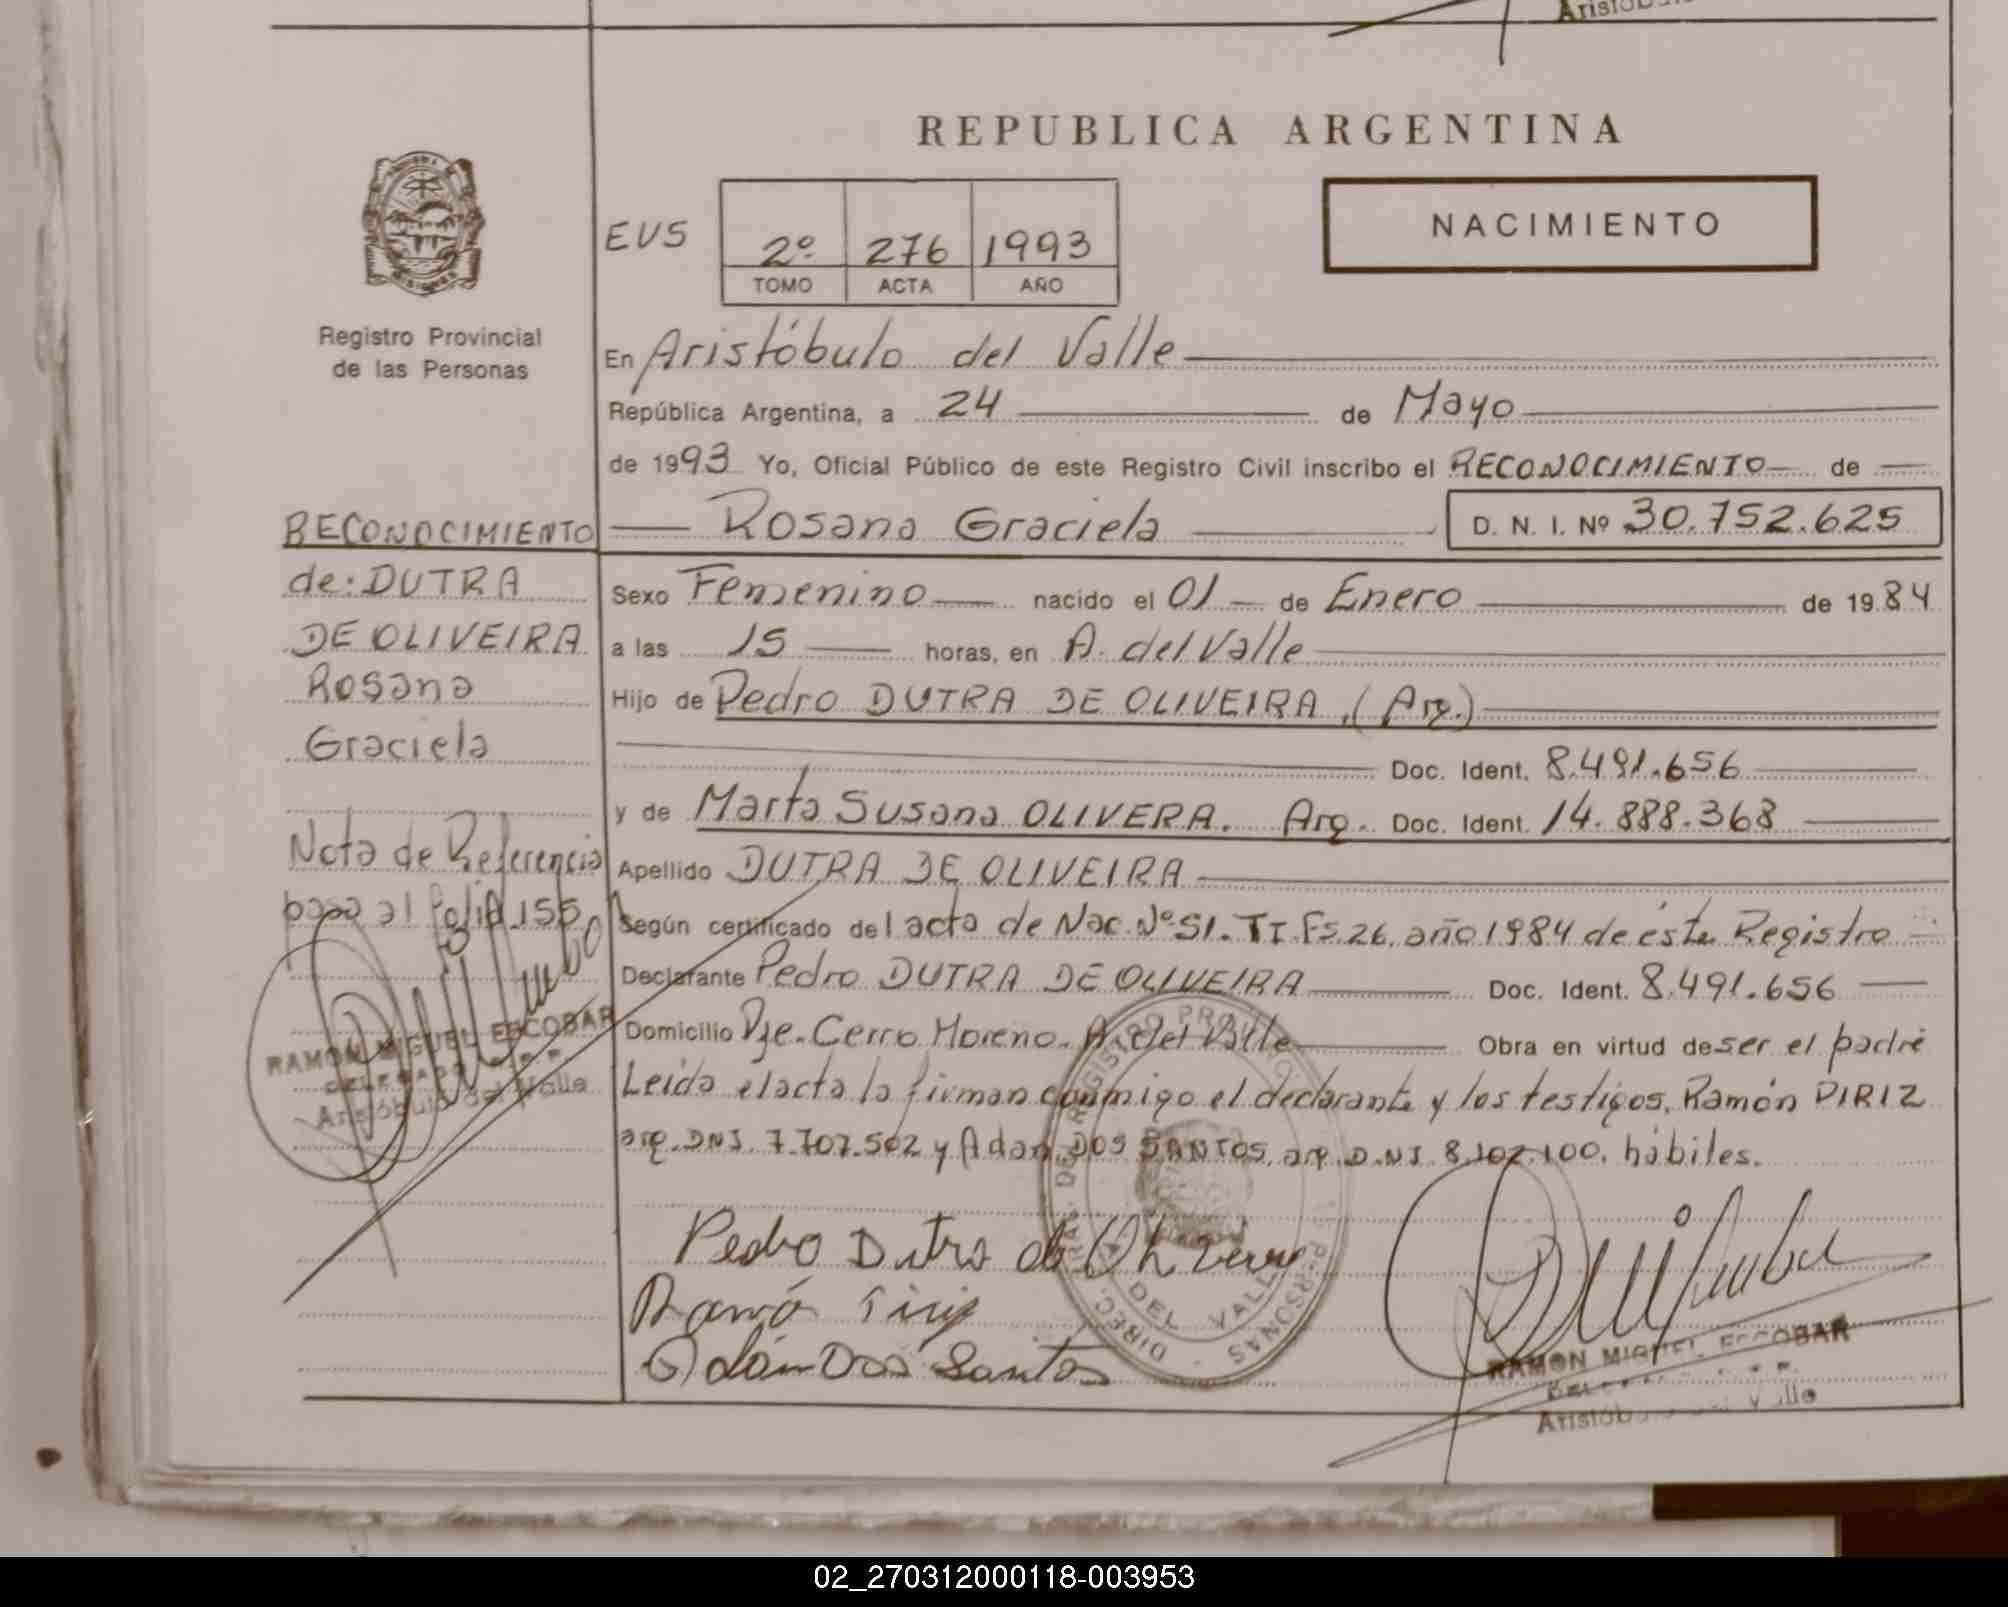 REPUBLICA ARGENTINA
NACIMIENTO
EVS
2º 276 1993
TOMO ACTA AÑO
Registro Provincial
de las Personas
En Aristóbulo del Valle
República Argentina, a 24 de Mayo
de 1993 Yo, Oficial Público de este Registro Civil inscribo el RECONOCIMIENTO de
Rosana Graciela D. N. I. Nº 30.752.625
RECONOCIMIENTO
de: DUTRA
DE OLIVEIRA
Rosana
Graciela
Nota de Referencia
pasa al Folio 155
RAMON MIGUEL ESCOBAR
DELEGADO
Aristóbulo del Valle
Sexo Femenino nacido el 01 de Enero de 1984
a las 15 horas, en A. del Valle
Hijo de Pedro DUTRA DE OLIVEIRA (Arg.)
Doc. Ident. 8.491.656
y de Marta Susana OLIVERA. Arg. Doc. Ident. 14.888.368
Apellido DUTRA DE OLIVEIRA
Según certificado del acta de Nac. Nº 51. TI. Fs. 26. año 1984 de éste Registro
Declarante Pedro DUTRA DE OLIVEIRA Doc. Ident. 8.491.656
Domicilio Pje. Cerro Moreno. A. del Valle Obra en virtud de ser el padre
Leída el acta la firman conmigo el declarante y los testigos, Ramón PIRIZ
arg. DNI. 7.707.502 y Adan DOS SANTOS, arg. D.N.I 8.102.100. hábiles.
Pedro Dutra de Oliveira
Ramó Piriz
Adán Dos Santos
DEL VALLE
RAMON MIGUEL ESCOBAR
02_270312000118-003953